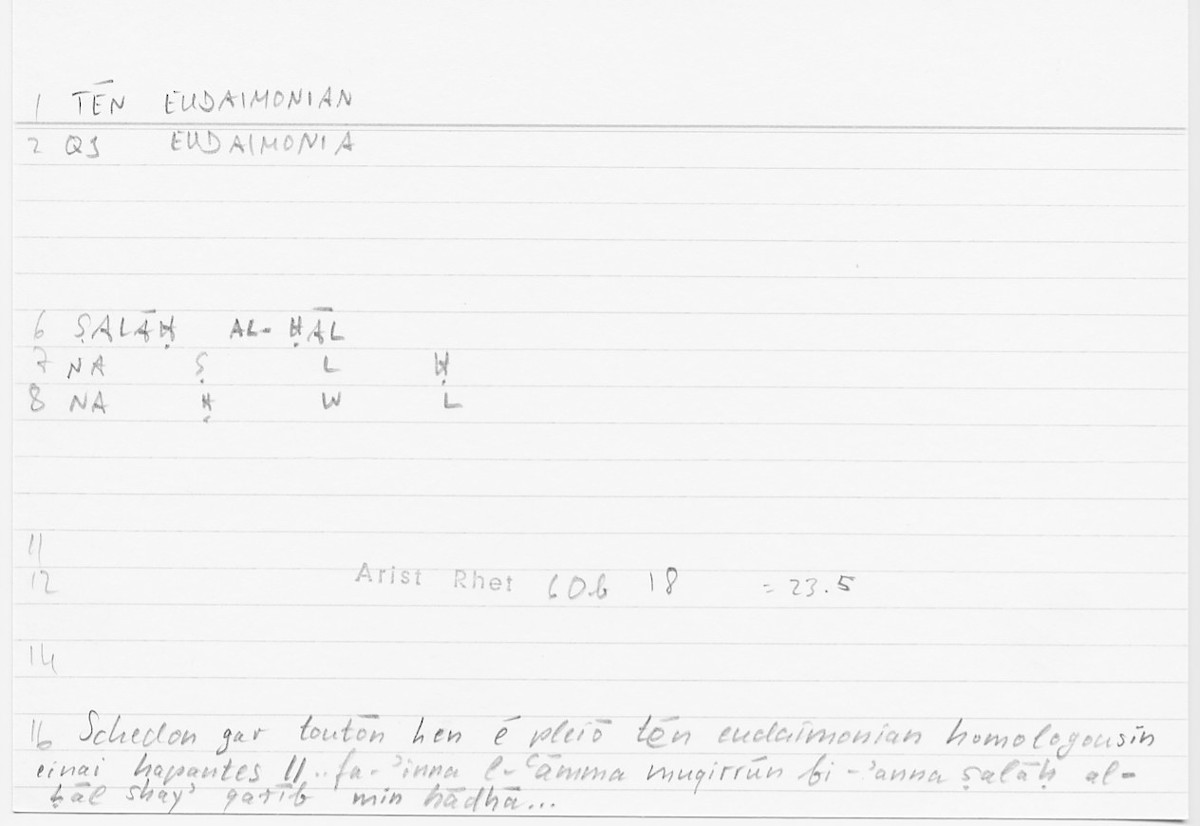 1 TĒN EUDAIMONIAN
2 QS EUDAIMONIA
6 ṢALĀḤ AL-ḤĀL
7 NA Ṣ L Ḥ
8 NA Ḥ W L
11
12 Arist Rhet 60b 18 = 23.5
14
16 Schedon gar toutōn hen ē pleiō tēn eudaimonian homologousin
einai hapantes || .. fa-ʾinna l-ʿāmma muqirrūn bi-ʾanna ṣalāḥ al-
ḥāl shayʾ qarīb min hādhā...